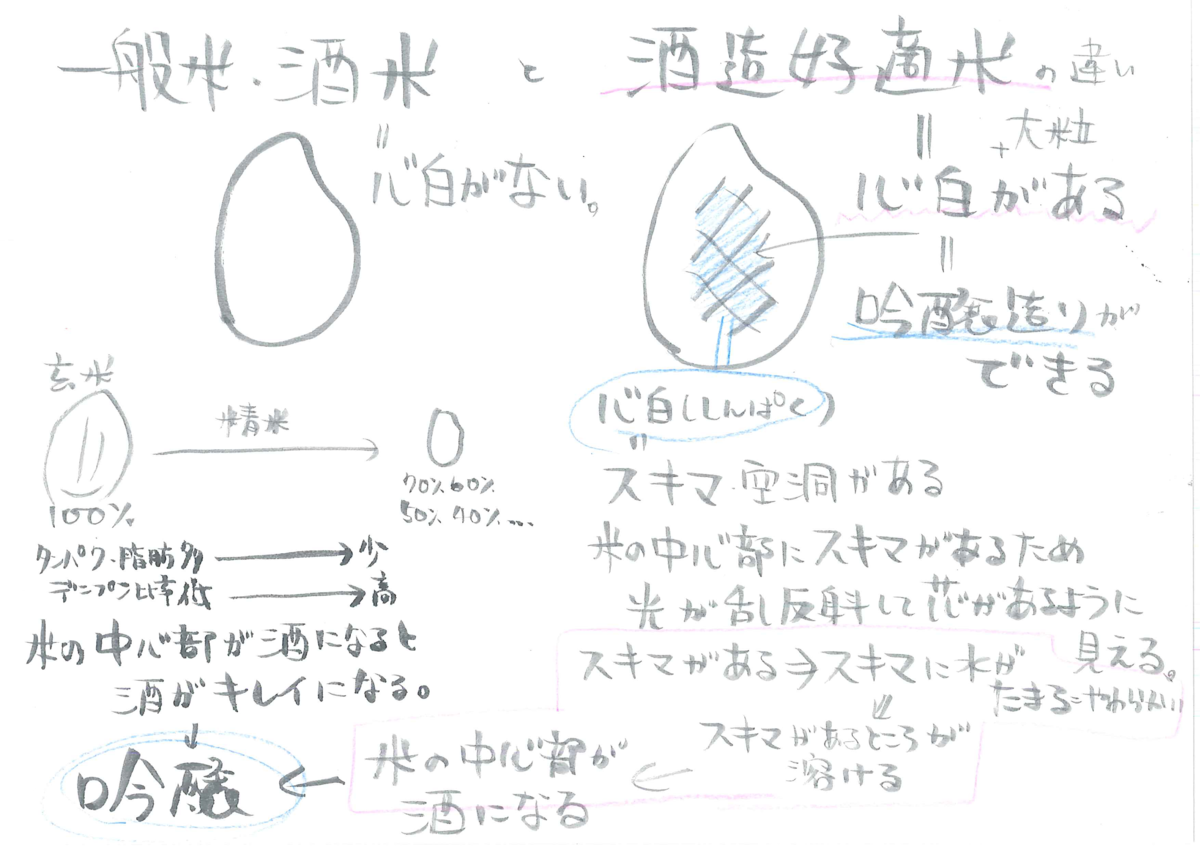 一般米・酒米 と 酒造好適米の違い
=
心白がない。
=
+大粒
心白がある
=
吟醸造りが
できる
心白(しんぱく)
=
スキマ・空洞がある
米の中心部にスキマがあるため
光が乱反射して芯があるように
見える。
スキマがある→スキマに水が
たまる=やわらかい
スキマがあるところが
溶ける
米の中心部が
酒になる
玄米
100%
精米
70% 60%
50% 40%...
タンパク・脂肪多 → 少
デンプン比率低 → 高
米の中心部が酒になると
酒がキレイになる。
↓
吟醸